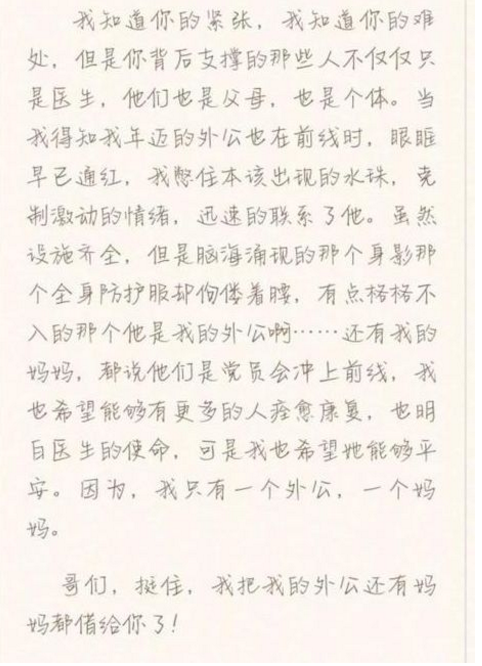 我知道你的紧张，我知道你的难
处，但是你背后支撑的那些人不仅仅只
是医生，他们也是父母，也是个体。当
我得知我年迈的外公也在前线时，眼眶
早已通红，我憋住本该出现的水珠，克
制激动的情绪，迅速的联系了他。虽然
设施齐全，但是脑海涌现的那个身影那
个全身防护服却佝偻着腰，有点格格不
入的那个他是我的外公啊……还有我的
妈妈，都说他们是党员会冲上前线，我
也希望能够有更多的人痊愈康复，也明
白医生的使命，可是我也希望她能够平
安。因为，我只有一个外公，一个妈
妈。
哥们，挺住，我把我的外公还有妈
妈都借给你了！